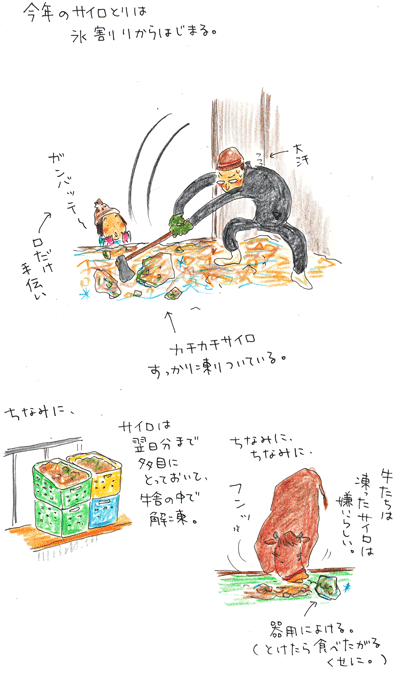 今年のサイロとりは
氷割りからはじまる。
大汗
ガンバッテ〜
口だけ
手伝い
カチカチサイロ
すっかり凍りついている。
ちなみに、
サイロは
翌日分まで
多目に
とっておいて、
牛舎の中で
解凍。
ちなみに、
ちなみに、
牛たちは
凍ったサイロは
嫌いらしい。
フンッ!!
器用によける。
(とけたら食べたがる
くせに。)